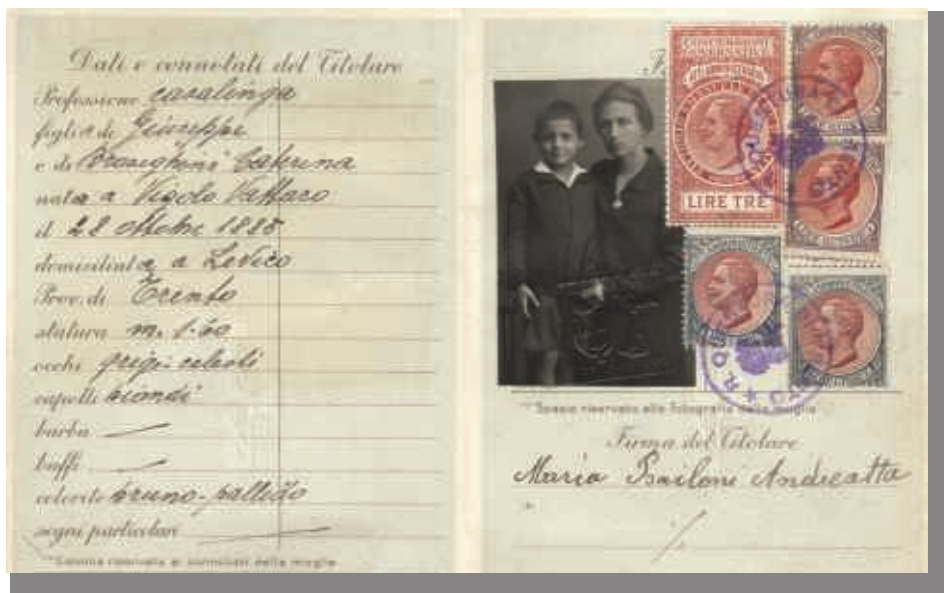 Dati e connotati del Titolare
Professione casalinga
figlia di Giuseppe
e di Caterina
nata a Vigolo Vattaro
il 28 ottobre 1885
domiciliata a Levico
Prov. di Trento
statura m. 1.60
occhi grigi-celesti
capelli biondi
barba
baffi
colorito bruno-pallido
segni particolari
Spazio riservato ai connotati della moglie
LIRE TRE
Spazio riservato alla fotografia della moglie
Firma del Titolare
Maria Bailoni Andreatta